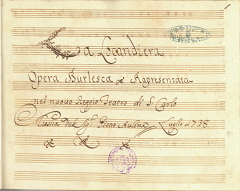 La Locandiera
Opera Burlesca Rapresentata
nel nuovo Reggio Teatro di S. Carlo
Musica Del Sig.r Pietro Auletta Luglio 1738